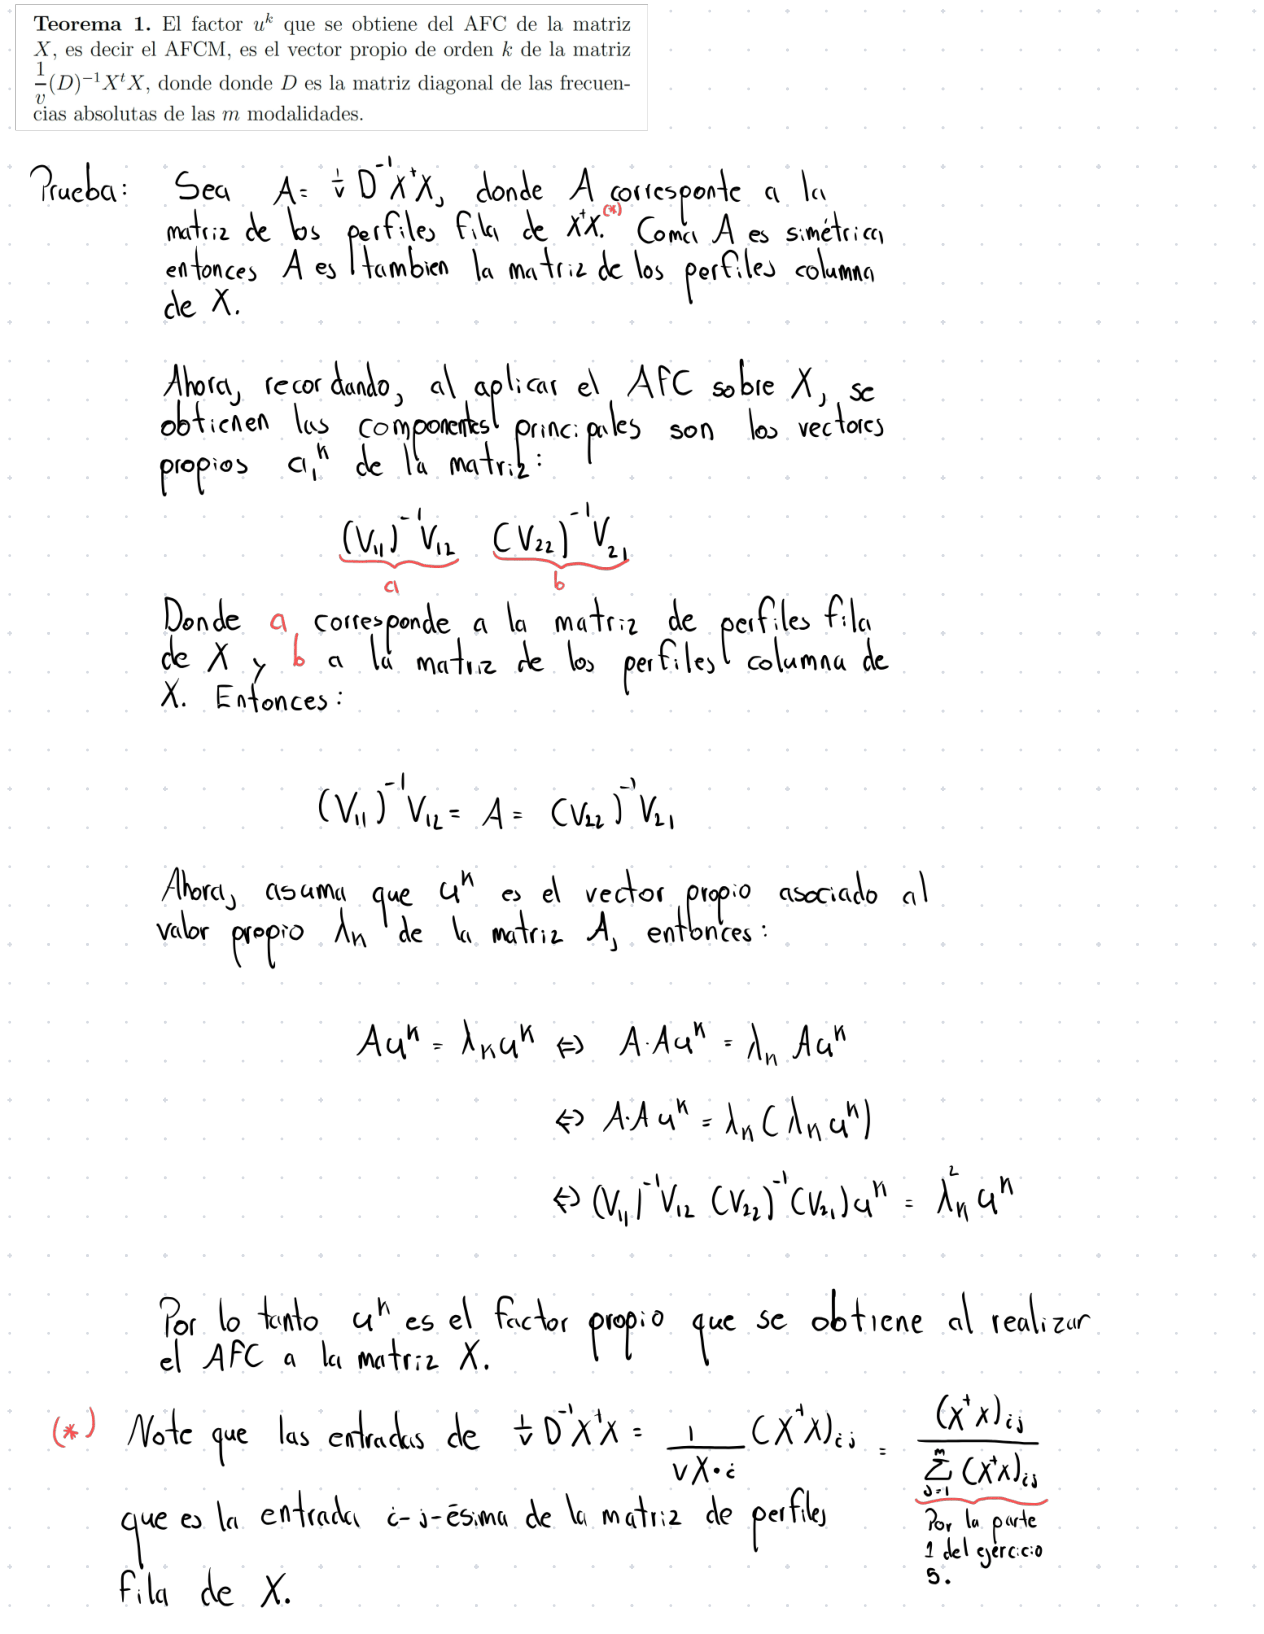 Teorema 1. El factor u^k que se obtiene del AFC de la matriz
X, es decir el AFCM, es el vector propio de orden k de la matriz
1/v (D)^{-1}X^tX, donde donde D es la matriz diagonal de las frecuen-
cias absolutas de las m modalidades.
Prueba: Sea A = 1/v D^{-1}X^tX, donde A corresponte a la
matriz de los perfiles fila de X^tX.^{(*)} Como A es simétrica
entonces A es tambien la matriz de los perfiles columna
de X.
Ahora, recordando, al aplicar el AFC sobre X, se
obtienen las componentes principales son los vectores
propios a_1^k de la matriz:
(V_{11})^{-1}V_{12} (V_{22})^{-1}V_{21}
a b
Donde a corresponde a la matriz de perfiles fila
de X y b a la matriz de los perfiles columna de
X. Entonces:
(V_{11})^{-1}V_{12} = A = (V_{22})^{-1}V_{21}
Ahora, asuma que u^k es el vector propio asociado al
valor propio λ_k de la matriz A, entonces:
Au^k = λ_k u^k ⇔ A·Au^k = λ_k Au^k
⇔ A·Au^k = λ_k(λ_k u^k)
⇔ (V_{11})^{-1}V_{12} (V_{22})^{-1}(V_{21})u^k = λ_k^2 u^k
Por lo tanto u^k es el factor propio que se obtiene al realizar
el AFC a la matriz X.
(*) Note que las entradas de 1/v D^{-1}X^tX = 1/(vX·i) (X^tX)_{ij} = (X^tX)_{ij} / Σ_{j=1}^m (X^tX)_{ij}
que es la entrada i-j-ésima de la matriz de perfiles
fila de X.
Por la parte
1 del ejercicio
5.